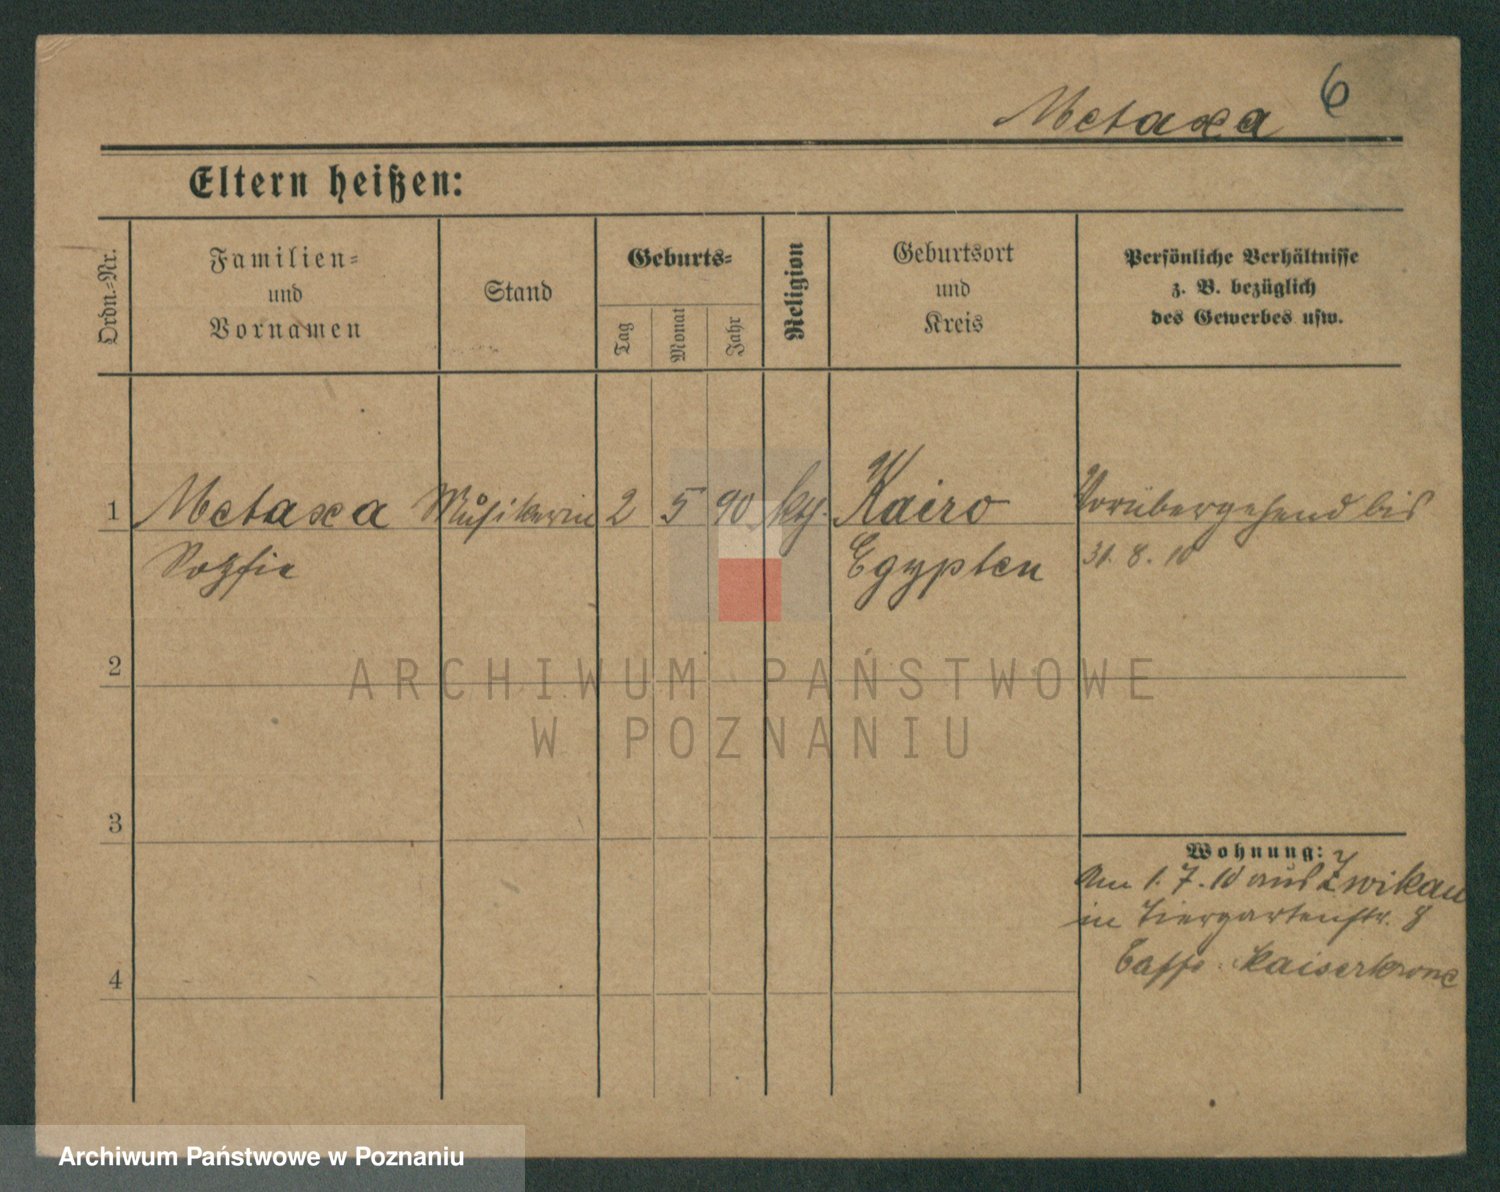 Metaxa 6
Eltern heißen:
Ordn.-Nr.
Familien-
und
Vornamen
Stand
Geburts-
Tag
Monat
Jahr
Religion
Geburtsort
und
Kreis
Persönliche Verhältnisse
z. B. bezüglich
des Gewerbes usw.
1 Metaxa Musikerin 2 5 90 kth. Kairo Vorübergehend bis
Sophie Egypten 31. 8. 10
2
ARCHIWUM PAŃSTWOWE
W POZNANIU
3
Wohnung:
Am 1. 7. 10 aus Zwikau
in Tiergartenstr. 8
4 Kaiserkrone
Archiwum Państwowe w Poznaniu